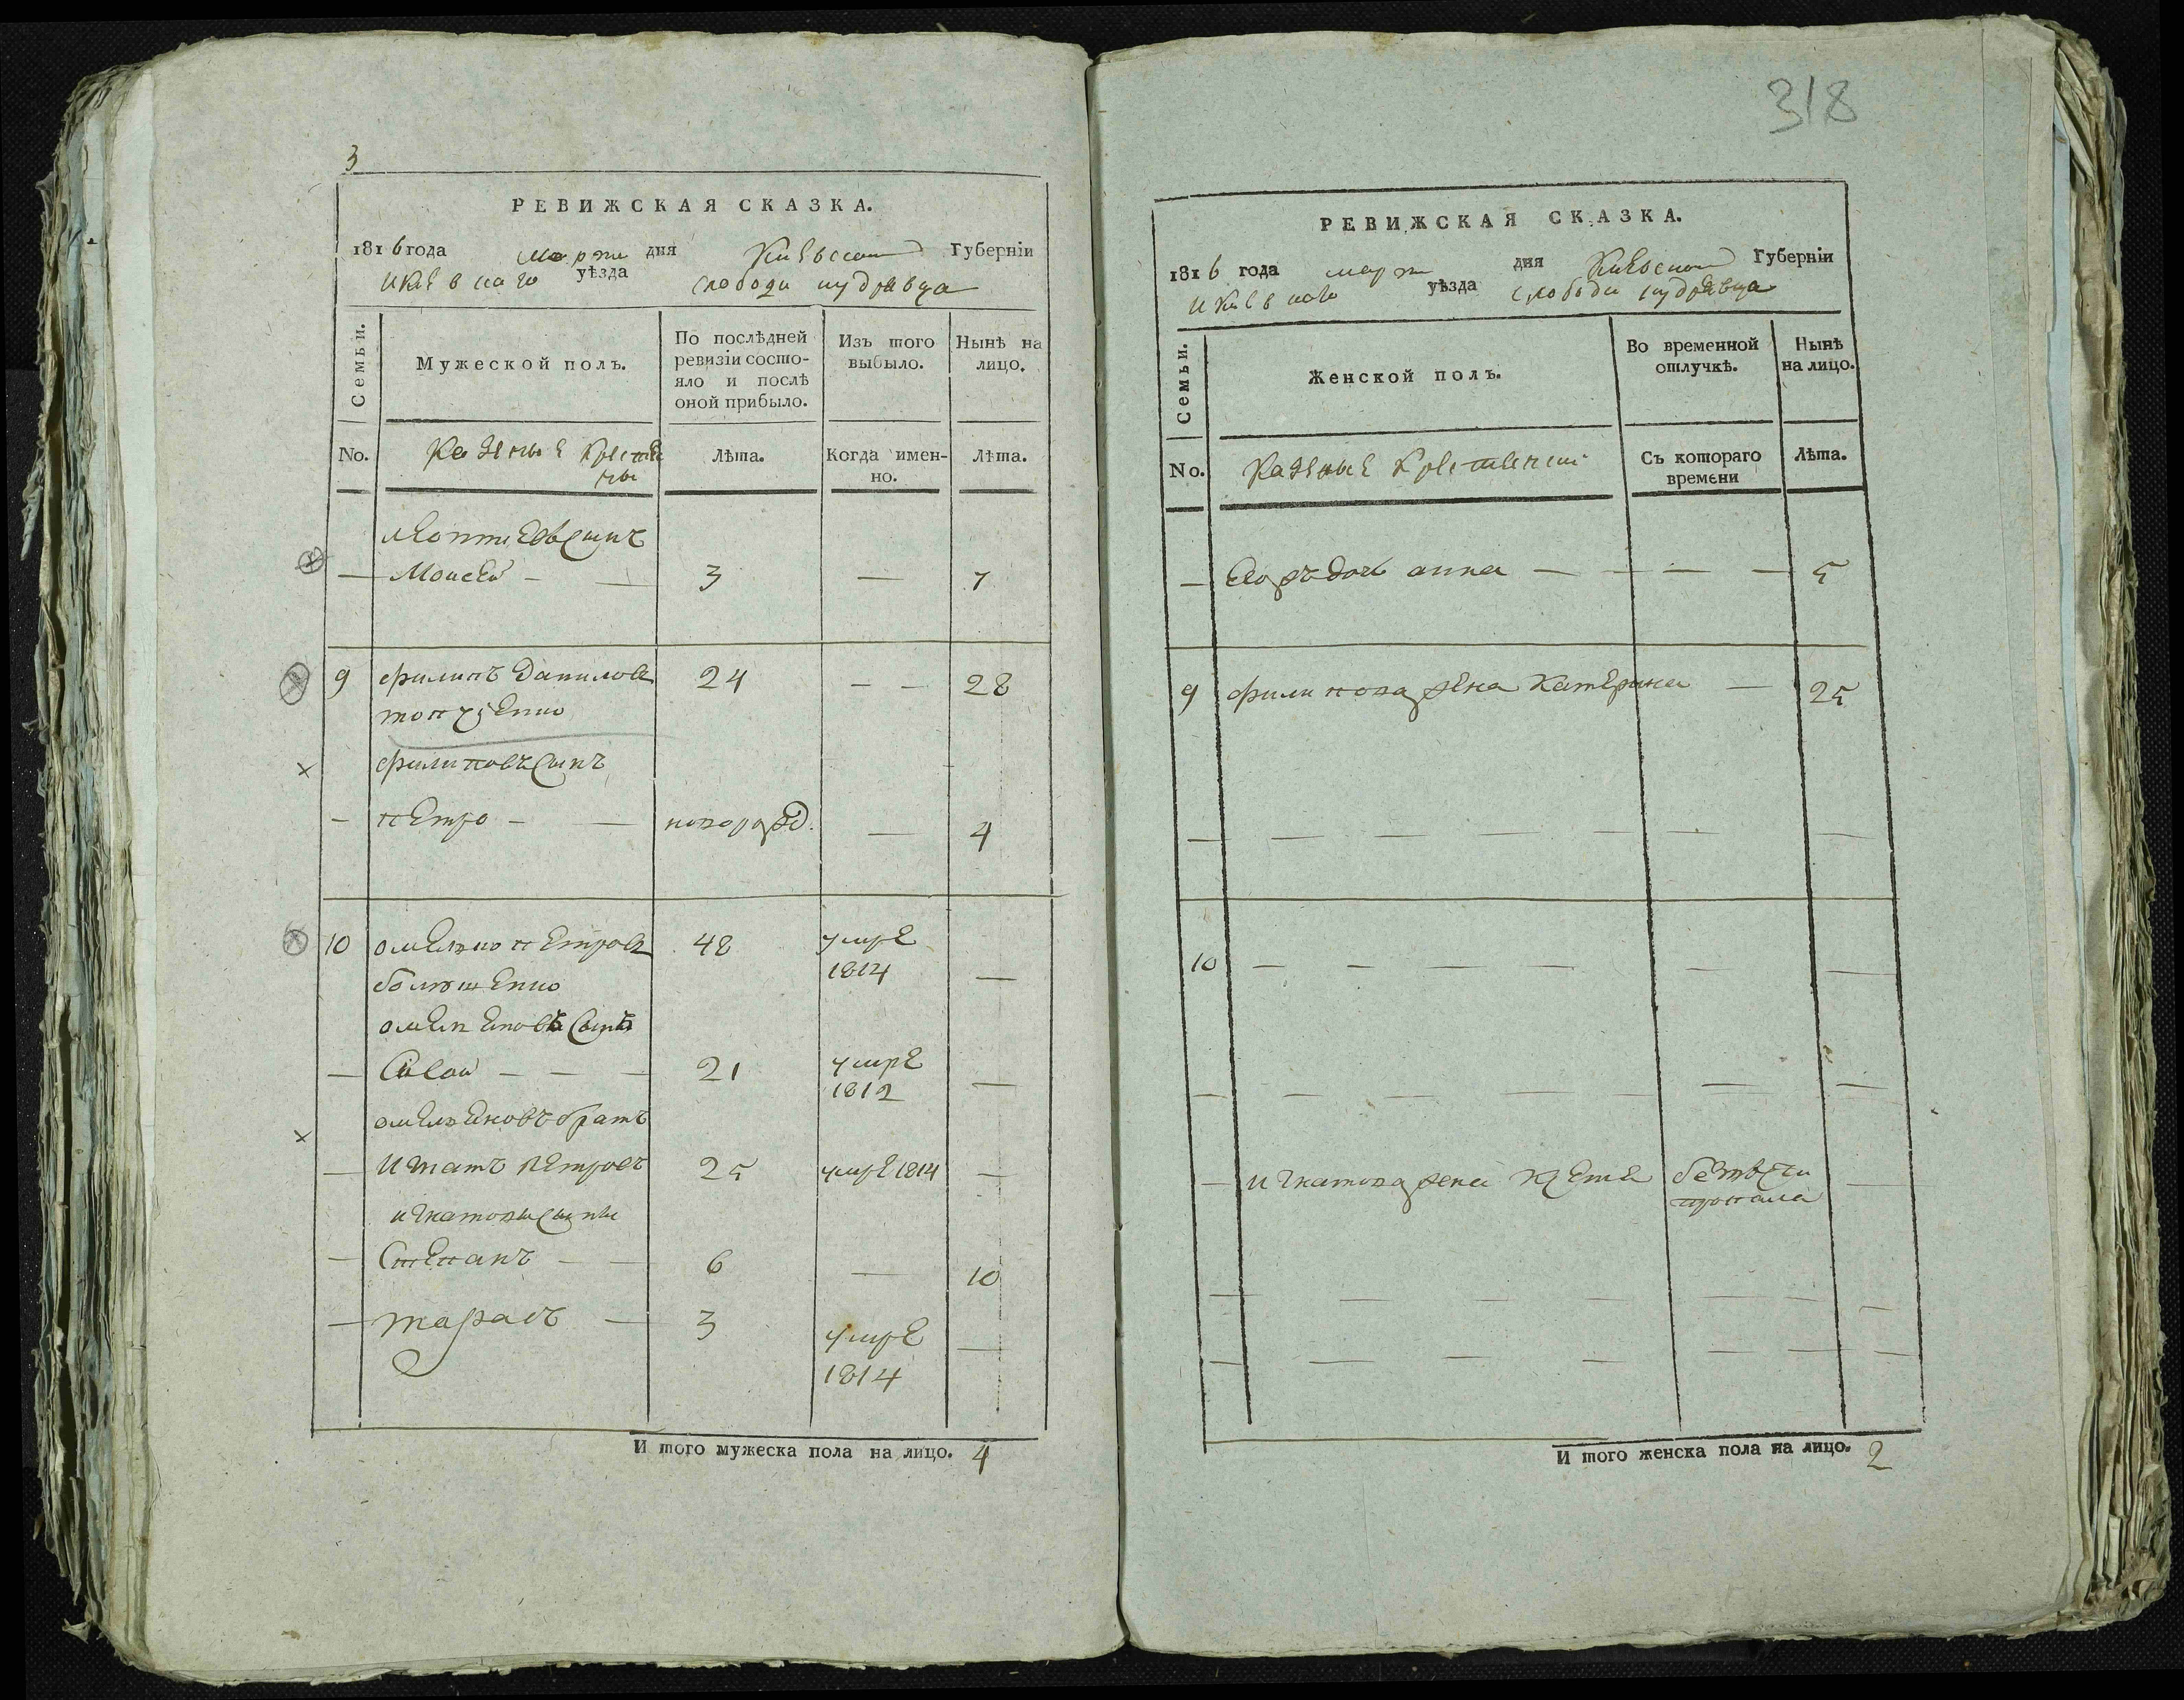 3
РЕВИЖСКАЯ СКАЗКА.
1816 года марта дня Киевской Губерніи
И Киевнаго уѣзда слободи кудрявца
Семьи.
Мужеской полъ.
По послѣдней ревизіи состо-
яло и послѣ
оной прибыло.
Изъ того
выбыло.
Нынѣ на
лицо.
No.
Казеные крестяне
Лѣта.
Когда имен-
но.
Лѣта.
сынъ
— Моисей — — 3 — 7
9 филипъ Даниловъ 24 — — 28
филиповъ сынъ
— петро — — новорожд. — 4
10 омелко петровъ 48 умре
1814 —
омелковъ сынъ
— — — — 21 умре
1812 —
омелковъ братъ
— Игнатъ петровъ 25 умре 1814 —
игнатовы сыны
— Степанъ — — 6 — 10
— тарасъ — 3 умре
1814 —
И того мужеска пола на лицо. 4
318
РЕВИЖСКАЯ СКАЗКА.
1816 года марта дня Киевской Губерніи
И Киевнаго уѣзда слободи кудрявца
Семьи.
Женской полъ.
Во временной
отлучкѣ.
Нынѣ
на лицо.
No.
Казеные крестяне
Съ котораго
времени
Лѣта.
— дочь анна — — — — 5
9 филипова жена катерина — 25
— — — — — — —
10 — — — — — —
— — — — — — —
— игнатова жена безвести
пропала —
— — — — — — —
— — — — — — —
И того женска пола на лицо. 2